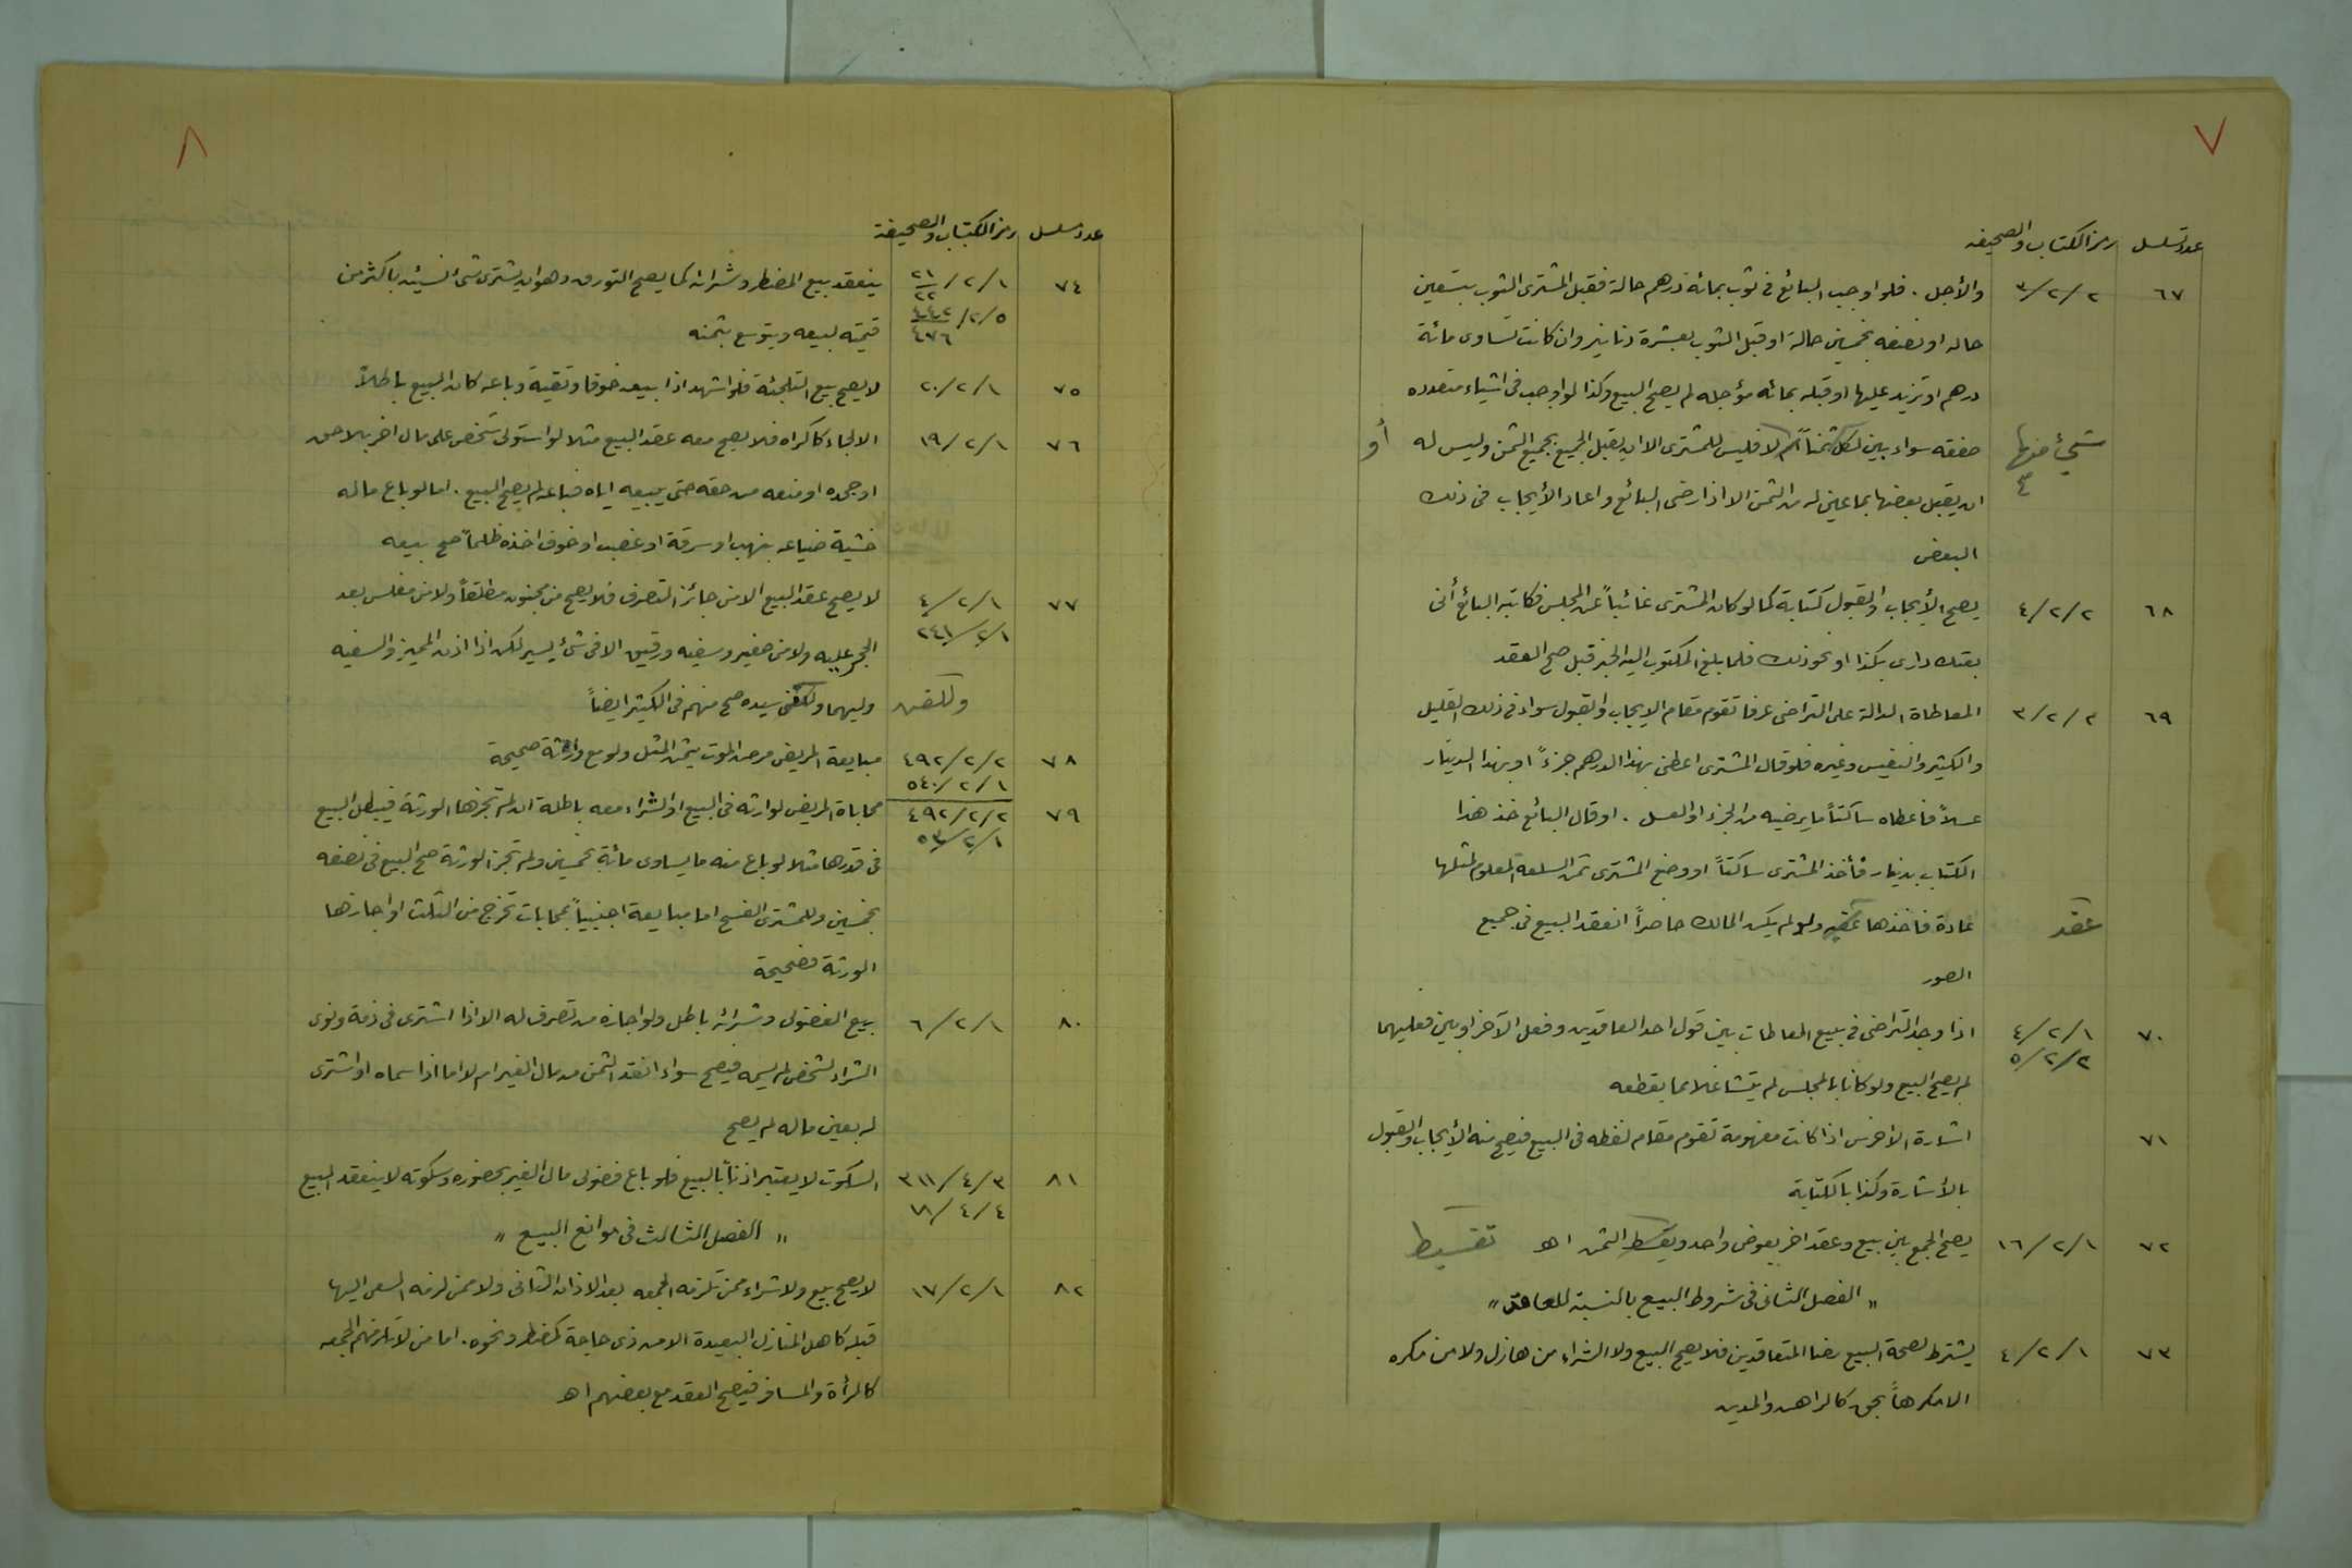 ٧
عدد تسلسل رمز الكتاب والصحيفه
٦٧ ٢/٢/٣ والأجل . فلو اوجب البائع فى ثوب بمائة درهم حالة فقبل المشترى الثوب بتسعين
حاله او نصفه بخمسين حالة او قبل الثوب بعشرة دنانير وان كانت تساوى مائة
درهم او تزيد عليها او قبله بمائه مؤجله لم يصح البيع وكذا لو اوجب فى اشياء متعدده
شيئ منها صفقه سواء بين لكل ثمناً ام لا فليس للمشترى الا ان يقبل الجميع بجميع الثمن وليس له أو
ان يقبل بعضها بما عين له من الثمن الا اذا رضى البائع واعاد الأيجاب فى ذلك
البعض
٦٨ ٢/٢/٤ يصح الأيجاب والقبول كتابة كما لو كان المشترى غائباً عن المجلس فكاتبه البائع أنى
بعتك دارى بكذا او نحو ذلك فلما بلغ المكتوب اليه الخبر قبل صح العقد
٦٩ ٢/٢/٣ المعاطاة الدالة على التراضى عرفا تقوم مقام الايجاب والقبول سواء فى ذلك القليل
والكثير والنفيس وغيره فلو قال المشترى اعطنى بهذا الدرهم جزءً او بهذا الدينار
عسلاً فاعطاه ساكتاً ما يرضيه من الجزء او العسل . او قال البائع خذ هذا
الكتاب بدينار فأخذ المشترى ساكتاً او وضع المشترى ثمن السلعه المعلوم لمثلها
عقد عادة فاخذها عقبه ولو لم يكن المالك حاضراً انعقد البيع فى جميع
الصور
٧٠ ١/٢/٤ اذا وجد التراضى فى بيع المعاطات بين قول احد العاقدين وفعل الآخر او بين فعليهما
٢/٢/٥
لم يصح البيع ولو كانا بالمجلس لم يتشاغلا بما يقطعه
٧١ اشارة الاخرس اذا كانت مفهومة تقوم مقام لفظه فى البيع فيصح منه الأيجاب والقبول
بالأشارة وكذا بالكتابة
٧٢ ١/٢/١٦ يصح الجمع بين بيع وعقد اخر بعوض واحد ويقسط الثمن اهـ تقسيط
" الفصل الثانى فى شروط البيع بالنسبة للعاقد "
٧٣ ١/٢/٤ يشترط لصحة البيع رضا المتعاقدين فلا يصح البيع ولا الشراء من هازل ولا من مكره
الا مكرهاً بحق كالراهن والمدين
٨
عدد مسلسل رمز الكتاب والصحيفة
٧٤ ١/٢/٢١ ٢٢ ينعقد بيع المضطر وشرائه كما يصح التورق وهو ان يشترى شئ نسيئه باكثر من
٥/٢/٤٤٢ ٤٧٦ قيمته لبيعه ويتوسع بثمنه
٧٥ ١/٢/٢٠ لا يصح بيع التلجئة فلو اشهد اذا بيعه خوفا وتقية وباعه كان البيع باطلاً
٧٦ ١/٢/١٩ الالجاء كاكراه فلا يصح معه عقد البيع مثلا لو استولى شخص على مال اخر بلا حق
او جحده او منعه من حقه حتى يبيعه اياه فباعه لم يصح البيع . اما لو باع ماله
خشية ضياعه بنهب او سرقة او غصب او خوف اخذه ظلماً صح بيعه
٧٧ ١/٢/٤ لا يصح عقد البيع الا من جائز التصرف فلا يصح من مجنون مطلقاً ولا من مفلس بعد
١/٢/٢٤١ الحجر عليه ولا من صغير وسفيه ورقيق الا فى شئ يسير لكن اذا اذن المميز والسفيه
وللقن وليهما وللقن سيده صح منهم فى الكثير ايضاً
٧٨ ٢/٢/٤٩٢ مبايعة المريض مرض الموت بثمن المثل ولو مع وارثة صحيحة
١/٢/٥٤٠
٧٩ ٢/٢/٤٩٢ محاباة المريض لوارثه فى البيع او الشراء معه باطلة ان لم تجزها الورثة فيبطل البيع
فى قدرها مثلا لو باع منه ما يساوى مائة بخمسين ولم تجز الورثة صح البيع فى نصفه
بخمسين وللمشترى الفسح اما مبايعة اجنبياً بمحابات تخرج من الثلث او اجازها
الورثة فصحيحة
٨٠ ١/٢/٦ بيع الفضولى وشرائه باطل ولو اجازه من تصرف له الا اذا اشترى فى ذمة ونوى
الشراء لشخص لم يسمه فيصح سواء انقد الثمن من مال الغير ام لا اما اذا سماه او اشترى
له بعين ماله لم يصح
٨١ ٣/٤/٣١١ السكوت لا يعتبر اذناً بالبيع فلو باع فضولى مال الغير بحضوره وسكوته لا ينعقد البيع
٤/٤/١٨
" الفصل الثالث فى موانع البيع "
٨٢ ١/٢/١٧ لا يصح بيع ولا شراء ممن تلزمه الجمعه بعد الاذان الثانى ولا ممن لزمه السعى اليها
قبله كاهل المنازل البعيدة الا من ذى حاجة كمضطر ونحوه . اما من لا تلزمهم الجمعه
كالمرأة والمسافر فيصح العقد مع بعضهم اهـ